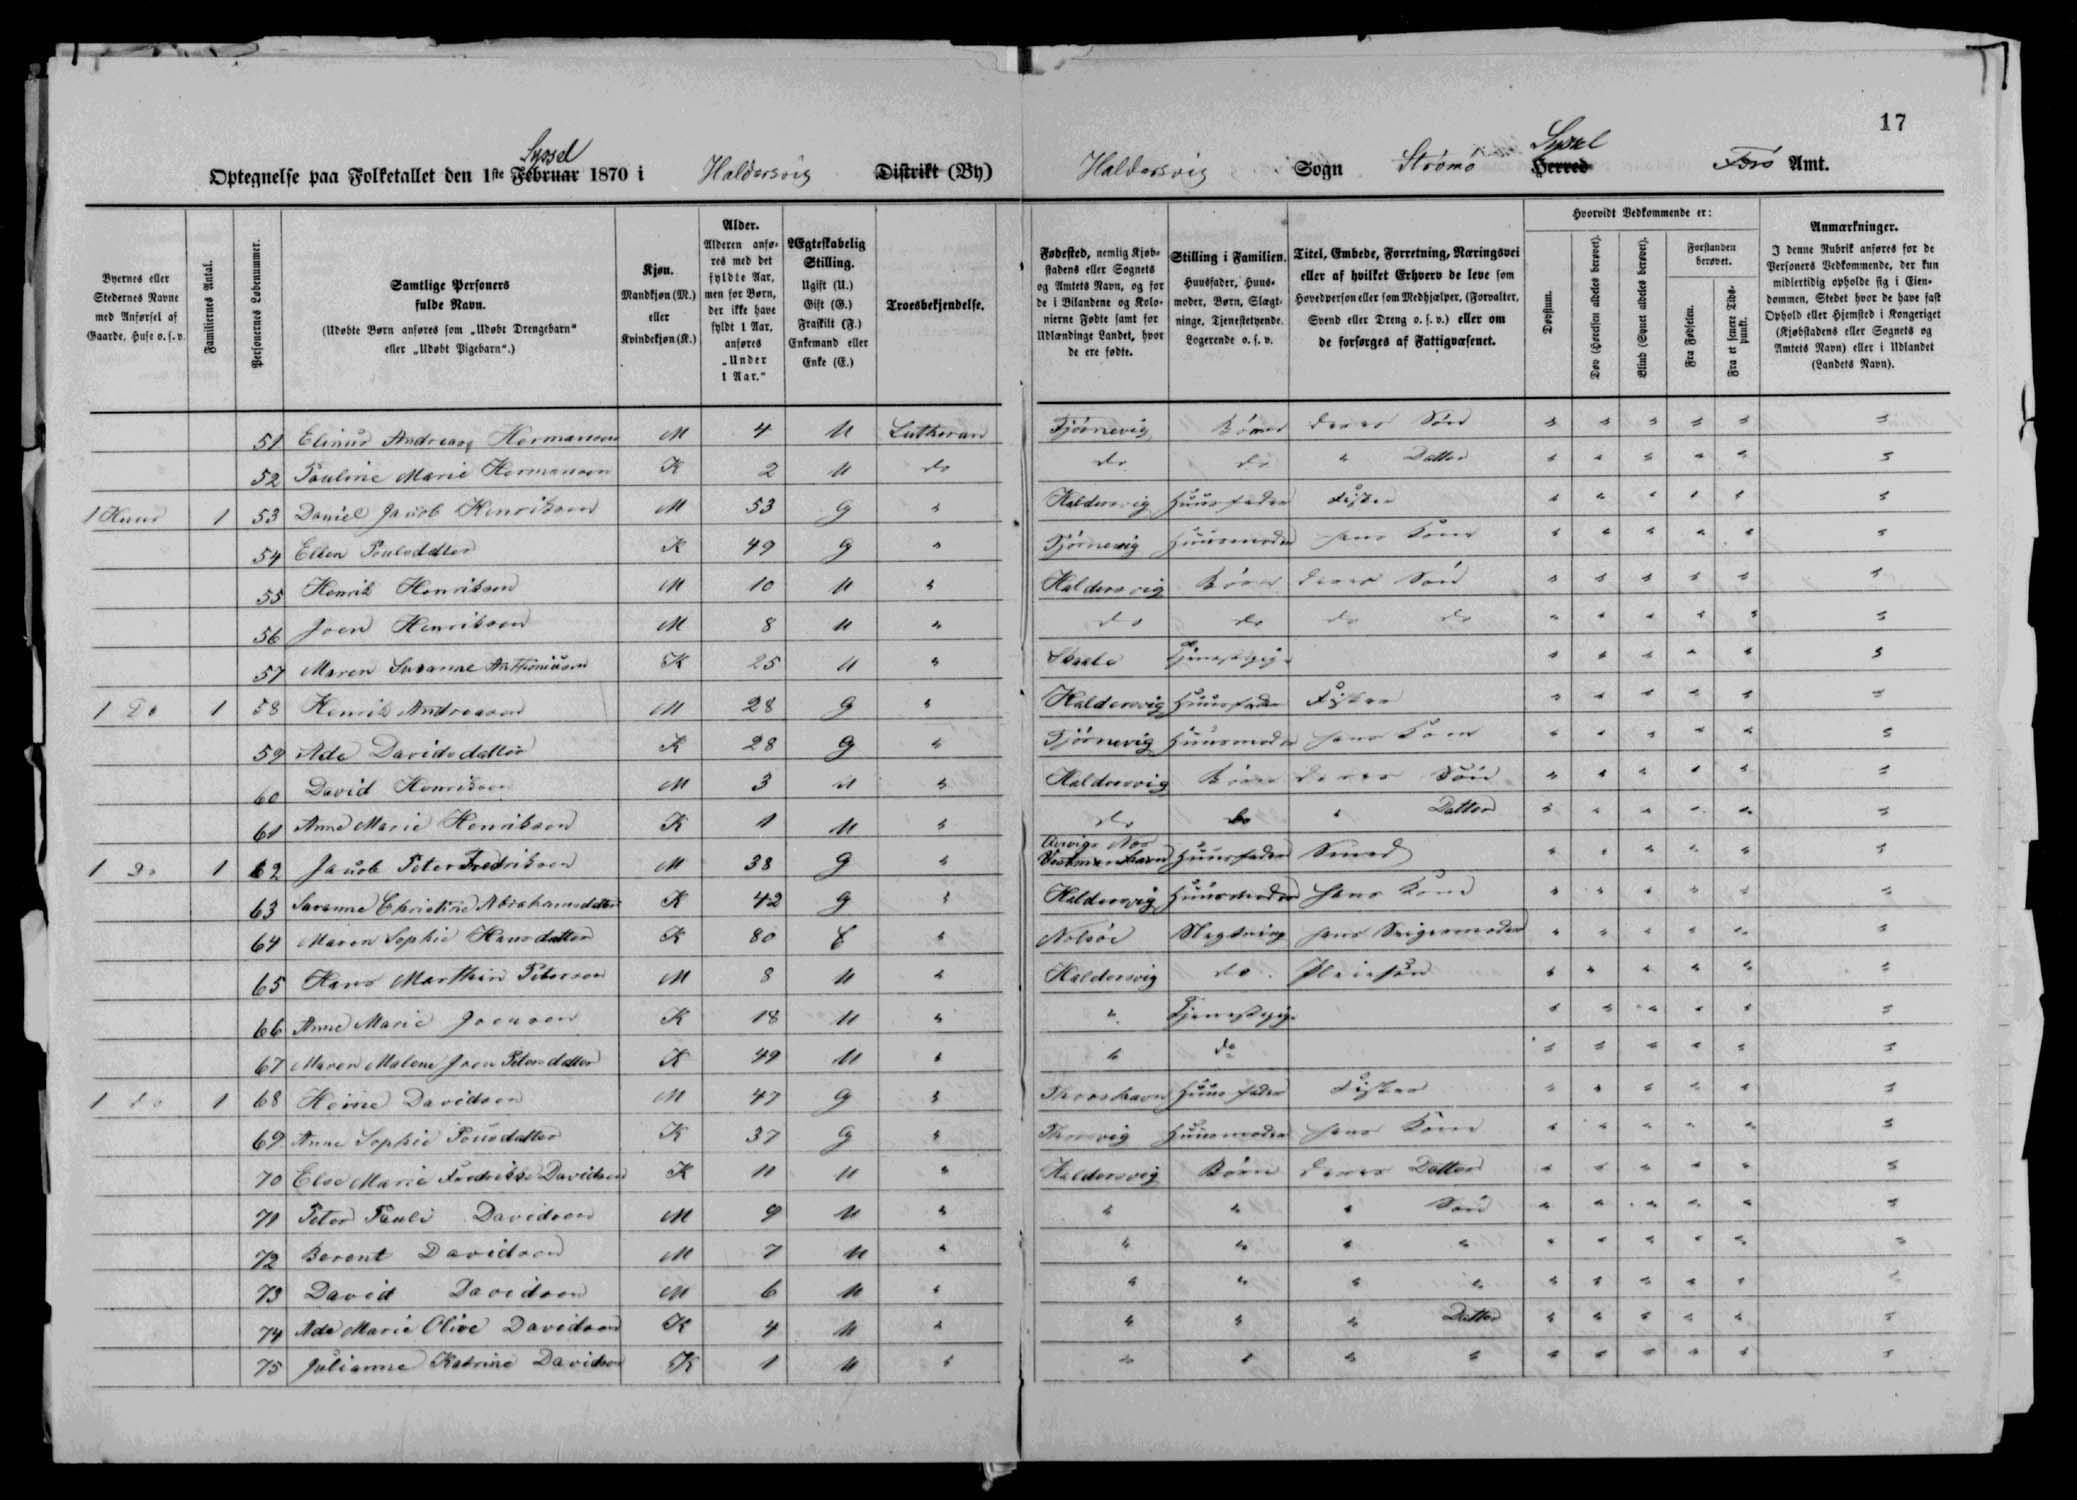 17
Syssel Syssel
Optegnelse paa Folketallet den 1ste Februar 1870 i Haldersvig Distrikt (By) Haldersvig Sogn Strømø Herred Færø Amt.
Byernes eller Stedernes Navne med Anførsel af Gaarde, Huse o. s. v.
Familiernes Antal.
Personernes Løbenummer.
Samtlige Personers fulde Navn. (Udøbte Børn anføres som „Udøbt Drengebarn“ eller „Udøbt Pigebarn“.)
Kjøn. Mandkjøn (M.) eller Kvindekjøn (K.)
Alder. Alderen anføres med det fyldte Aar, men for Børn, der ikke have fyldt 1 Aar, anføres „Under 1 Aar.“
Ægteskabelig Stilling. Ugift (U.) Gift (G.) Fraskilt (F.) Enkemand eller Enke (E.)
Troesbekjendelse.
Fødested, nemlig Kjøbstadens eller Sognets og Amtets Navn, og for de i Bilandene og Kolonierne Fødte samt for Udlændinge Landet, hvor de ere fødte.
Stilling i Familien. Huusfader, Huusmoder, Børn, Slægtninge, Tjenestetyende, Logerende o. s. v.
Titel, Embede, Forretning, Næringsvei eller af hvilket Erhverv de leve som Hovedperson eller som Medhjælper, (Forvalter, Svend eller Dreng o. s. v.) eller om de forsørges af Fattigvæsenet.
Hvorvidt Vedkommende er:
Døvstum.
Døv (Hørelsen aldeles berøvet).
Blind (Synet aldeles berøvet).
Forstanden berøvet.
Fra Fødselen.
Fra et senere Tidspunkt.
Anmærkninger. I denne Rubrik anføres for de Personers Vedkommende, der kun midlertidig opholde sig i Eiendommen, Stedet hvor de have fast Ophold eller Hjemsted i Kongeriget (Kjøbstadens eller Sognets og Amtets Navn) eller i Udlandet (Landets Navn).
51 Elinus Andreas Hermansen M 4 U Lutheran Tjørnevig Børn deres Søn " " " " " "
52 Pauline Marie Hermansen K 2 U do do do " Datter " " " " " "
1 Huus 1 53 Daniel Jacob Henriksen M 53 G " Haldersvig Huusfader Fisker " " " " " "
54 Ellen Poulsdatter K 49 G " Tjørnevig Huusmoder hans Kone " " " " " "
55 Henrik Henriksen M 10 U " Haldersvig Børn deres Søn " " " " " "
56 Joen Henriksen M 8 U " do do do do " " " " " "
57 Maren Susanne K 25 U " Tjenestepige " " " " " "
1 Do 1 58 Henrik Andreasen M 28 G " Haldersvig Huusfader Fisker " " " " " "
59 Ade Davidsdatter K 28 G " Tjørnevig Huusmoder hans Kone " " " " " "
60 David Henriksen M 3 U " Haldersvig Børn deres Søn " " " " " "
61 Anne Marie Henriksen K 1 U " do do " Datter " " " " " "
1 Do 1 62 Jacob Peter Fredriksen M 38 G " Vestmanhavn Huusfader Smed " " " " " "
63 Susanne Christine Abrahamsdatter K 42 G " Haldersvig Huusmoder hans Kone " " " " " "
64 Maren Sophie Hansdatter K 80 E " Nolsöe Slægtning hans Svigermoder " " " " " "
65 Hans Marthin Petersen M 8 U " Haldersvig do. Pleiesøn " " " " " "
66 Anne Marie Joensen K 18 U " " Tjenestepige " " " " " "
67 Maren Malene Joen Petersdatter K 49 U " " do " " " " " "
1 do 1 68 Heine Davidsen M 47 G " Thorshavn Huusfader Fisker " " " " " "
69 Anne Sophie K 37 G " Huusmoder hans Kone " " " " " "
70 Else Marie Fredrikke Davidsen K 11 U " Haldersvig Børn deres Datter " " " " " "
71 Peter Pauli Davidsen M 9 U " " " " Søn " " " " " "
72 Berent Davidsen M 7 U " " " " " " " " " " "
73 David Davidsen M 6 U " " " " " " " " " " "
74 Ade Marie Olive Davidsen K 4 U " " " " Datter " " " " " "
75 Julianne Katrine Davidsen K 1 U " " " " " " " " " " "